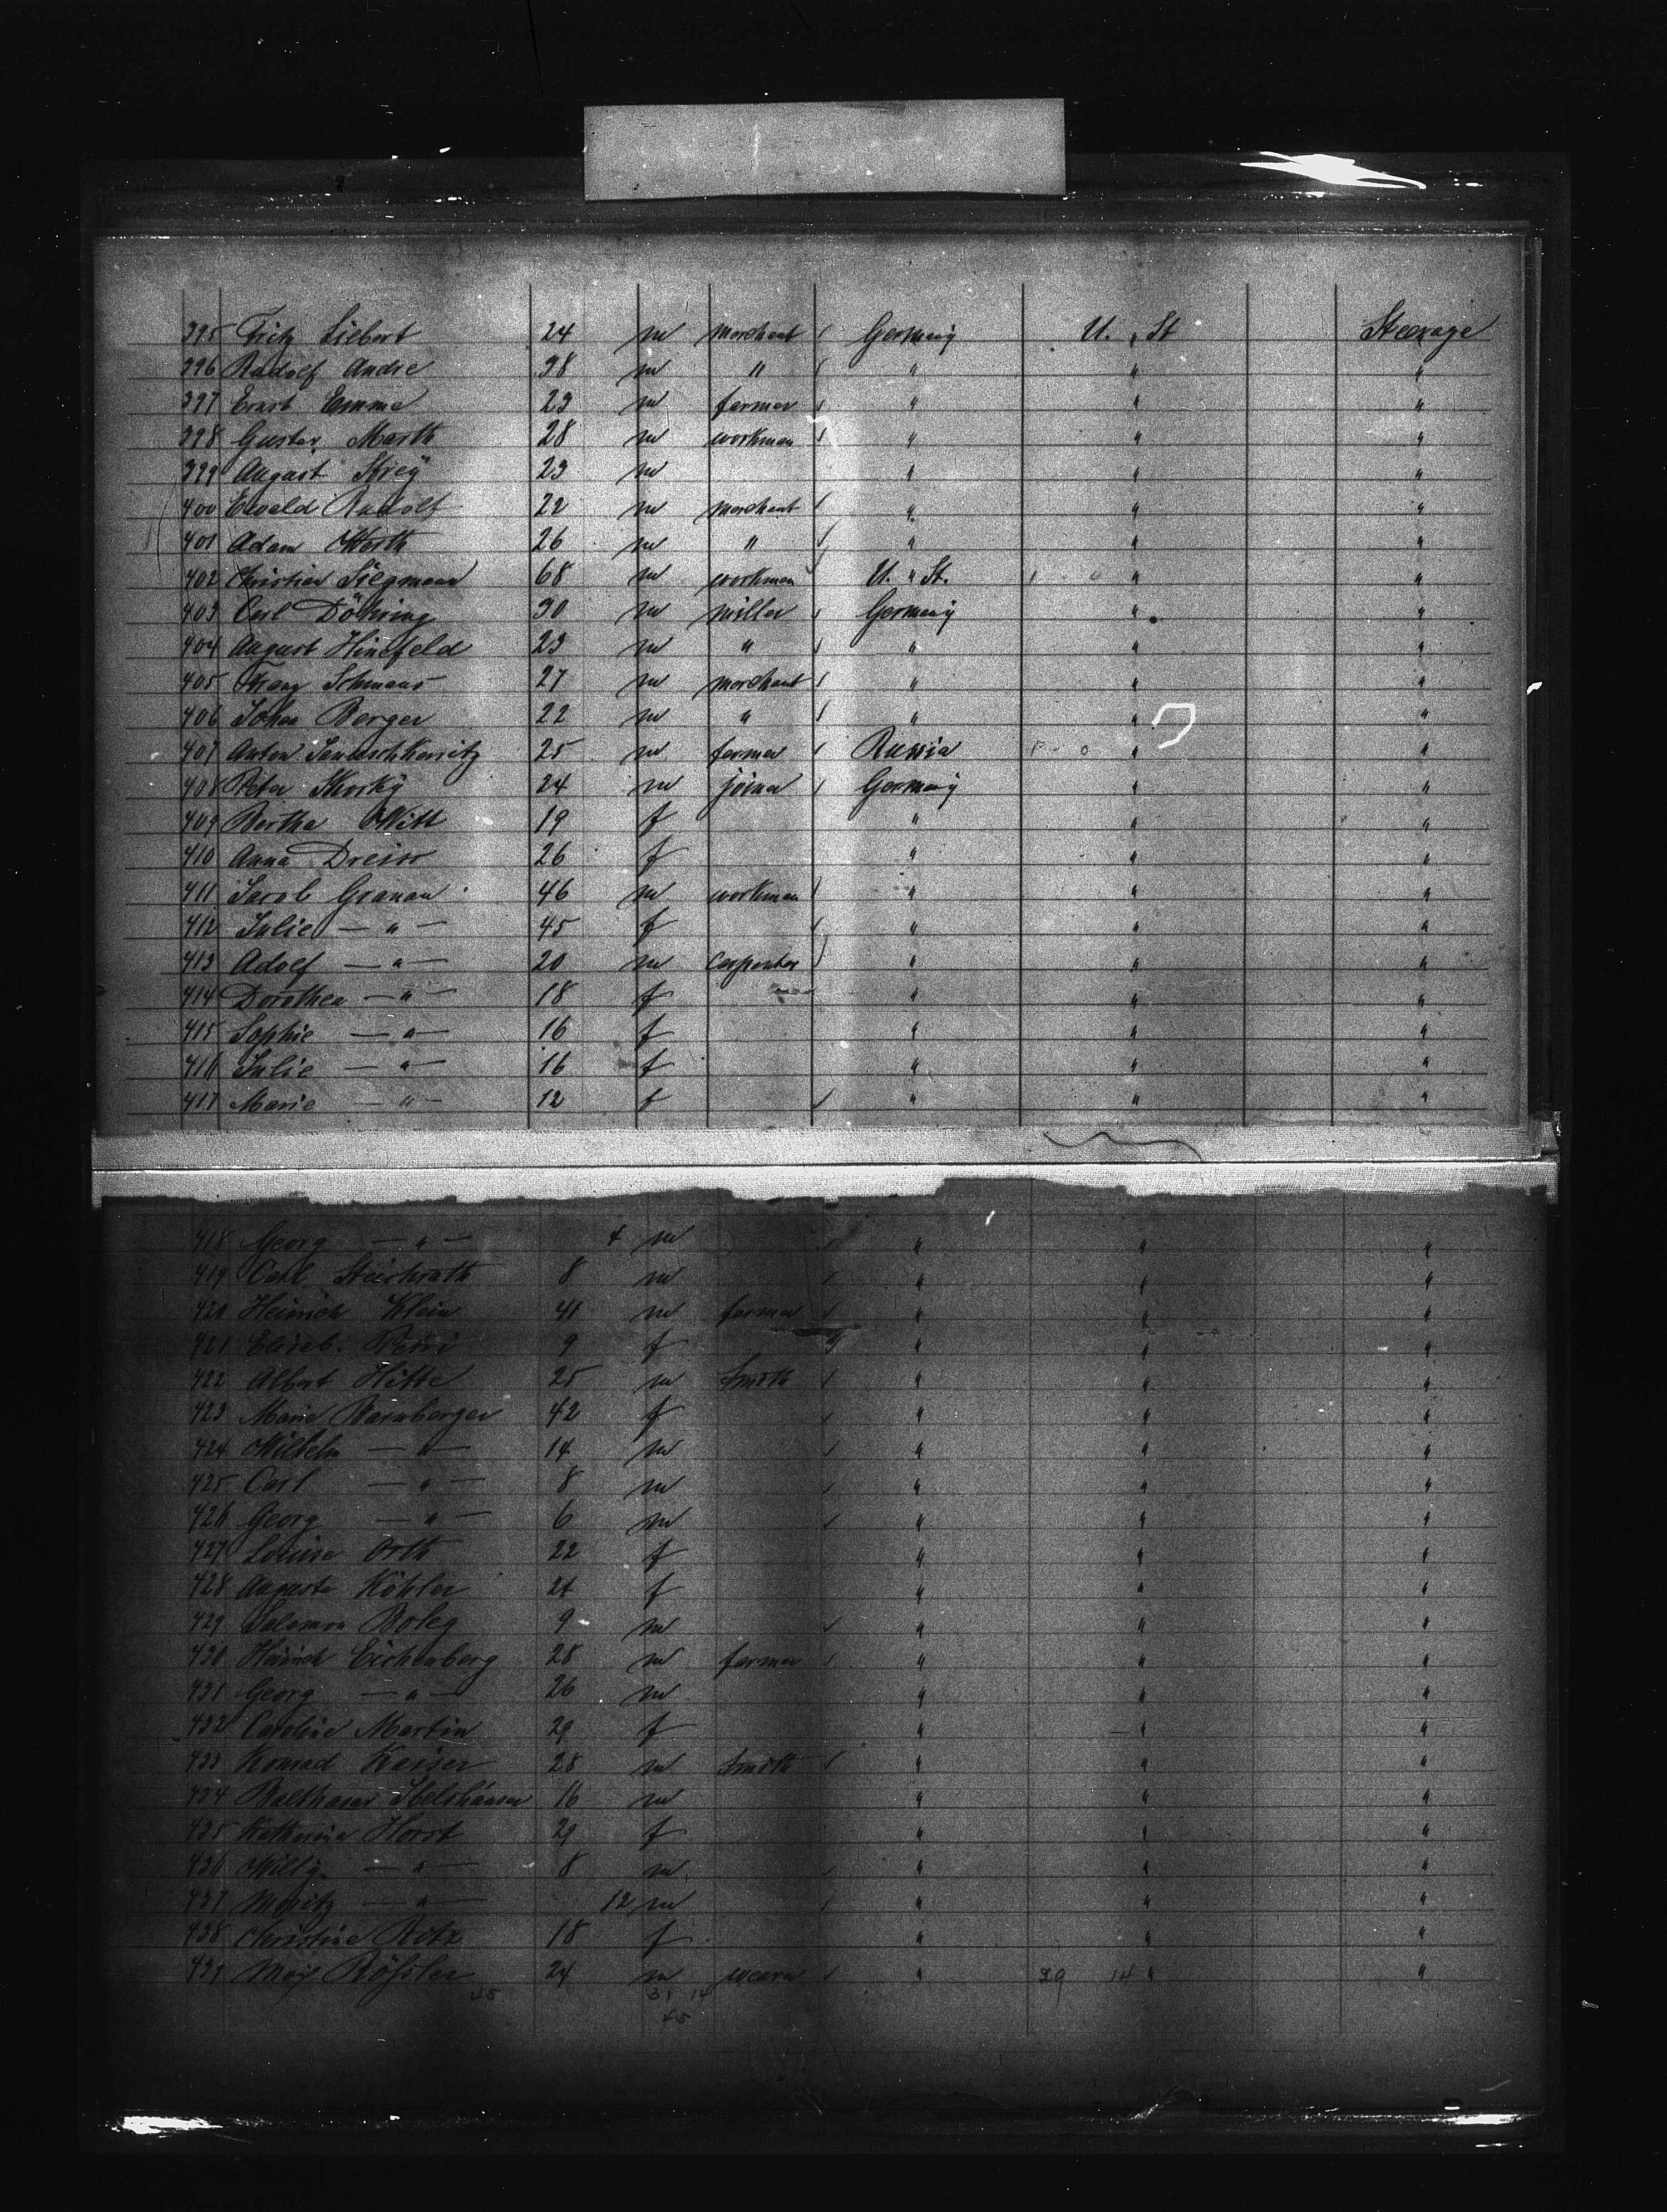 395 Fritz Liebert 24 m merchant Germany U. St Steerage
396 Rudolf Andre 38 m " " " "
397 Ernst Emme 23 m farmer " " "
398 Gustav Marth 28 m workman " " "
399 August Krey 23 m " " "
400 Ewald Rudolf 22 m merchant " " "
401 Adam Werth 26 m " " " "
402 Christian Siegmann 68 m workman U. " St. " "
403 Carl Döhring 30 m miller Germany " "
404 August Hinefeld 23 m " " " "
405 Franz Schmaus 27 m merchant " " "
406 Johan Berger 22 m " " " "
407 Anton 25 m farmer Russia " "
408 Peter Skorky 24 m joiner Germany " "
409 Bertha Witt 19 f " " "
410 Anna 26 f " " "
411 Jacob Granau 46 m workman " " "
412 Julie — " — 45 f " " "
413 Adolf — " — 20 m carpenter " " "
414 Dorothea — " — 18 f " " "
415 Sophie — " — 16 f " " "
416 Julie — " — 16 f " " "
417 Marie — " — 12 f " " "
418 Georg — " — 4 m " " "
419 Carl 8 m " " "
420 Heinrich Klein 41 m farmer " " "
421 Eliseb. Petri 9 f " " "
422 Albert Hette 25 m Smith " " "
423 Marie Barnberger 42 f " " "
424 Wilhelm — " — 14 m " " "
425 Carl — " — 8 m " " "
426 Georg — " — 6 m " " "
427 Louise Orth 22 f " " "
428 Auguste Köhler 24 f " " "
429 Salomon Boleg 9 m " " "
430 Heinrich Eichenberg 28 m farmer " " "
431 Georg — " — 26 m " " "
432 Caroline Martin 29 f " " "
433 Konrad Kaiser 28 m Smith " " "
434 Balthasar Ibelshäuser 16 m " " "
435 Katharina Horst 29 f " " "
436 Willy — " — 8 m " " "
437 Moritz — " — 12 m " " "
438 Christine Ritz 18 f " " "
439 Max Rößler 24 m " 29 14 " "
45 31 14
45